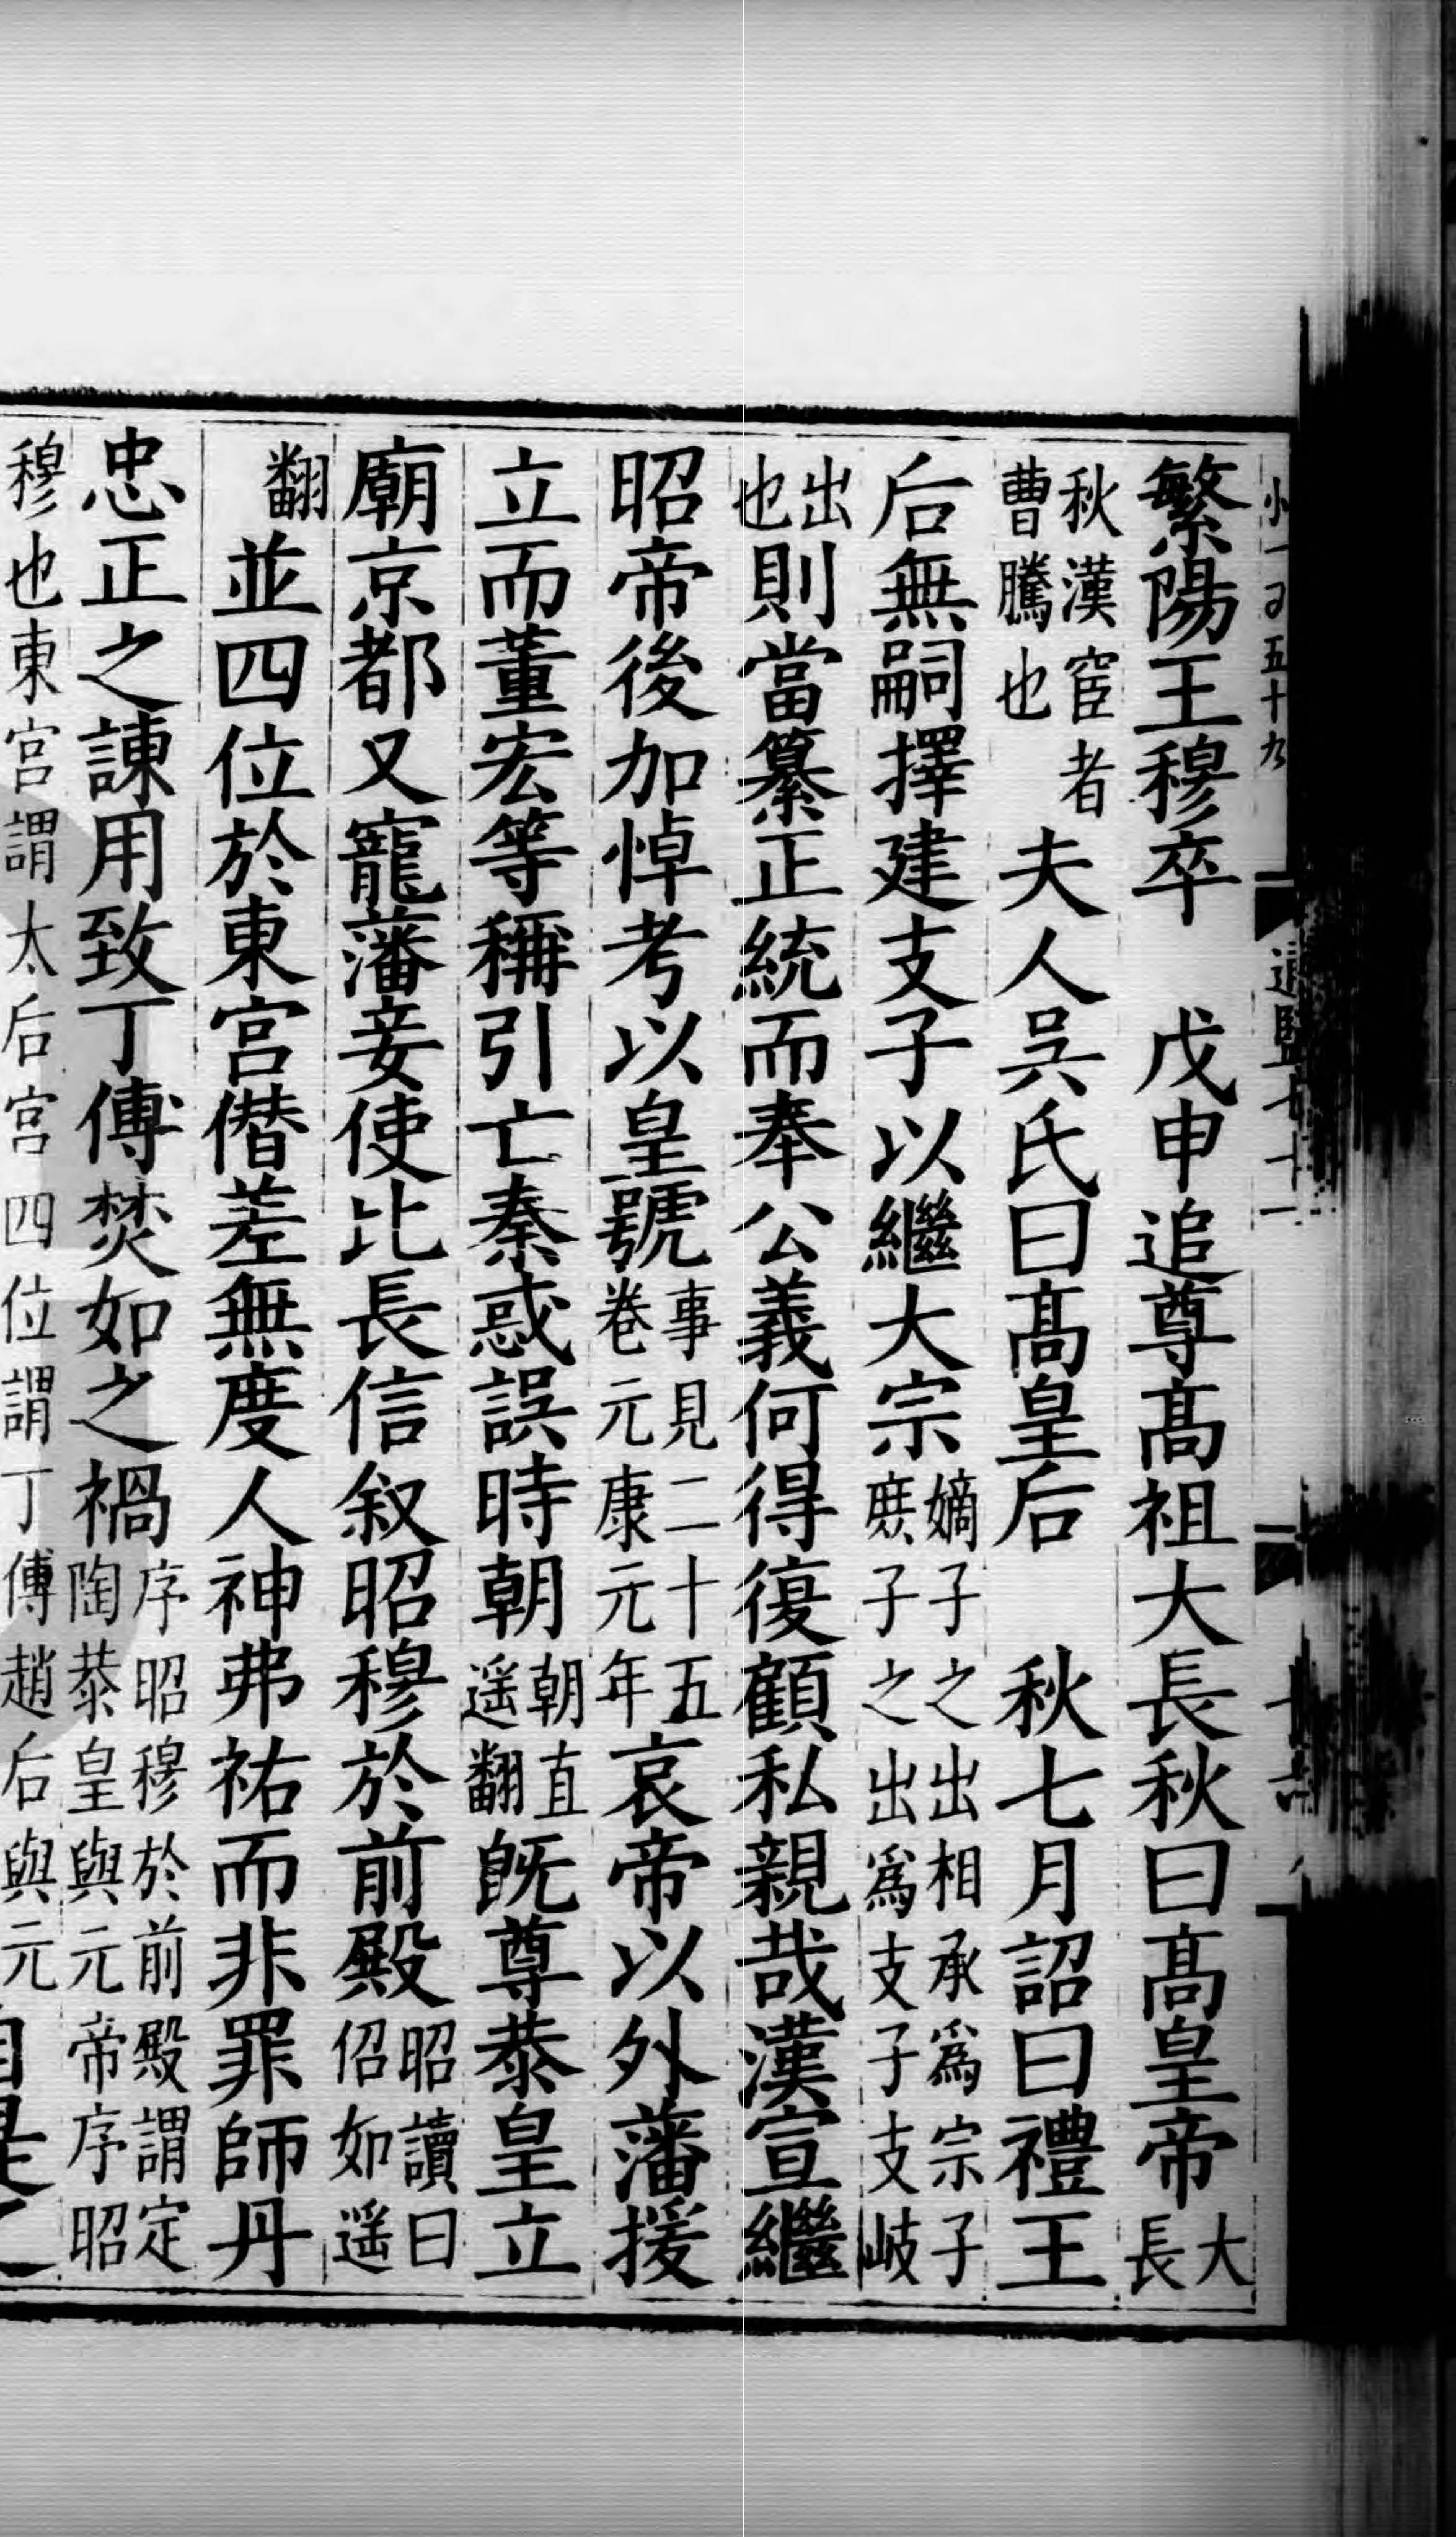 繁陽王穆卒　戊申追尊髙祖大長秋曰髙皇帝大長
秋漢宦者曹騰也夫人吳氏曰髙皇后　秋七月詔曰禮王
后無嗣擇建支子以繼大宗嫡子之出相承爲宗子庶子之出爲支子支岐
出也則當纂正統而奉公義何得復顧私親哉漢宣繼
昭帝後加悼考以皇號事見二十五卷元康元年哀帝以外藩援
立而董宏等稱引亡秦惑誤時朝朝直遥翻旣尊恭皇立
廟京都又寵藩妾使比長信叙昭穆於前殿昭讀曰佋如遥
翻並四位於東宫僭差無度人神弗祐而非罪師丹
忠正之諫用致丁傅焚如之禍序昭穆於前殿謂定陶恭皇與元帝序昭
穆也東宫謂太后宫四位謂丁傅趙后與元